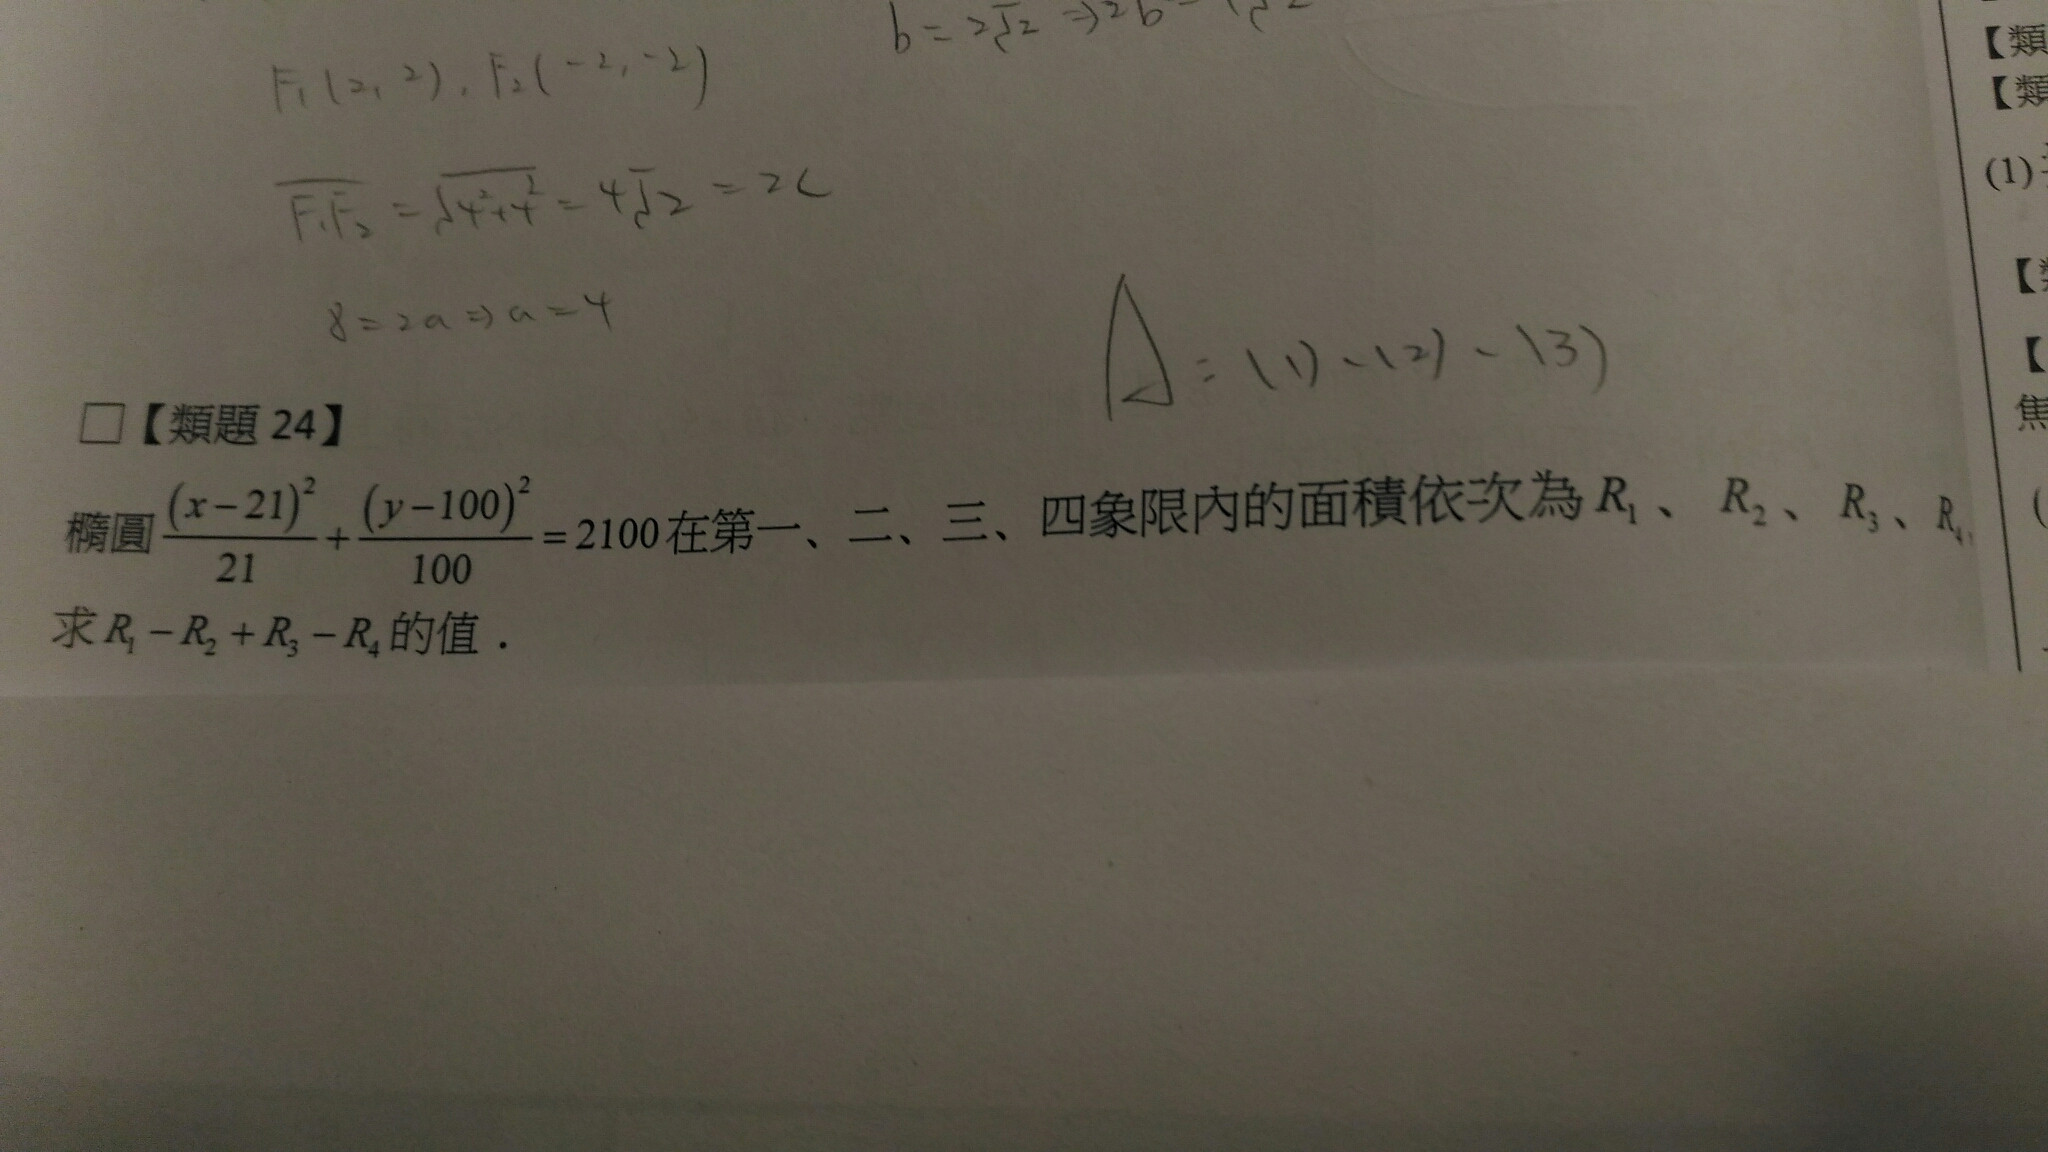 b = 2√2 ⇒ 2b =
F₁(2, 2), F₂(-2, -2)
F₁F₂ = √4²+4² = 4√2 = 2c
8 = 2a ⇒ a = 4
A = (1)、(2)、(3)
□【類題 24】
橢圓 (x-21)²/21 + (y-100)²/100 = 2100 在第一、二、三、四象限內的面積依次為 R₁、R₂、R₃、R₄,
求 R₁ - R₂ + R₃ - R₄ 的值.
【類
【類
(1)
【
【
焦
(